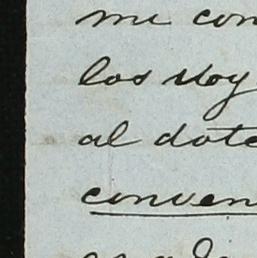 me con
los doy
al dote
conven